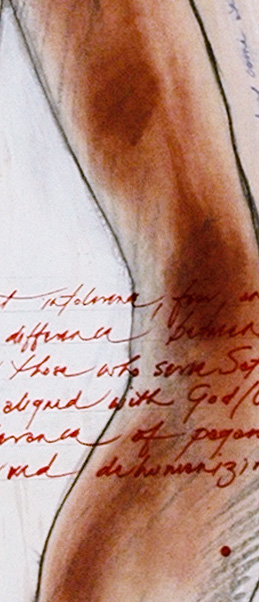 t intolerence, fear, an
difference between
those who serve Sat
aligned with God/
erance of pagan
ved dehumanizin
had come